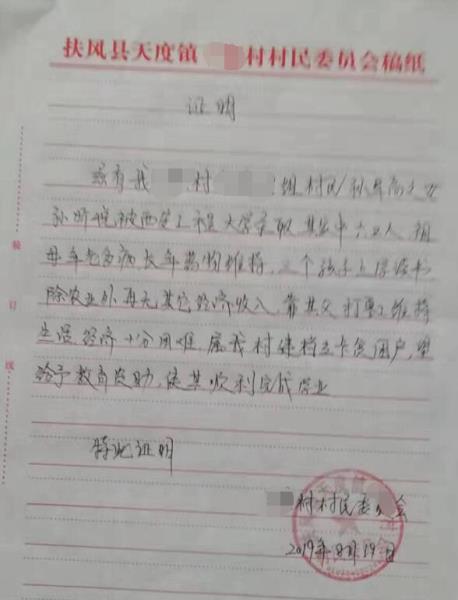 扶风县天度镇 村村民委员会稿纸
证明
兹有我 村 组村民孙 高之女
孙 被西安工程大学录取,其家中六口人,祖
母年老多病长年药物维持,三个孩子上学读书
除农业外再无其它经济收入,靠其父打零工维持
生活,经济十分困难,属我村建档立卡贫困户,望
给予教育资助,使其顺利完成学业
特此证明
村村民委员会
2019年8月19日
装
订
线